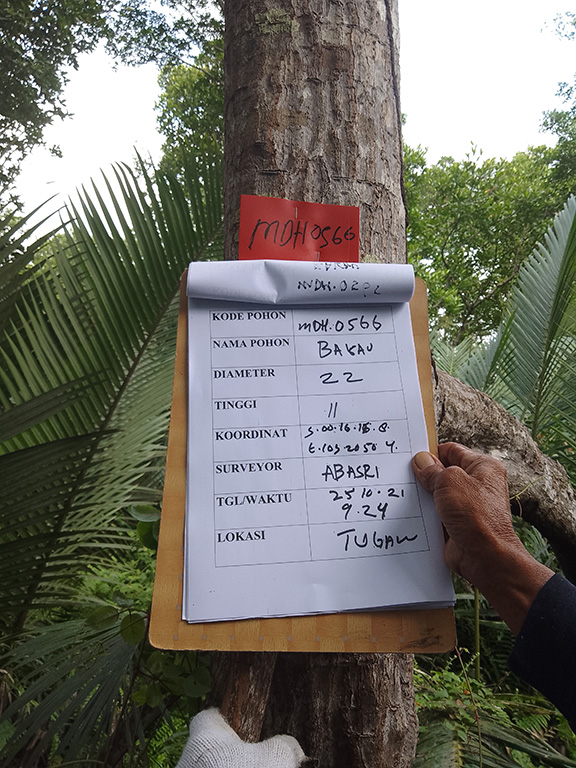 MDH 0566
KODE POHON MDH.0566
NAMA POHON BAKAU
DIAMETER 22
TINGGI 11
KOORDINAT S.00.16.
E.103 20 50
SURVEYOR ABASRI
TGL/WAKTU 25 10.21
9.24
LOKASI